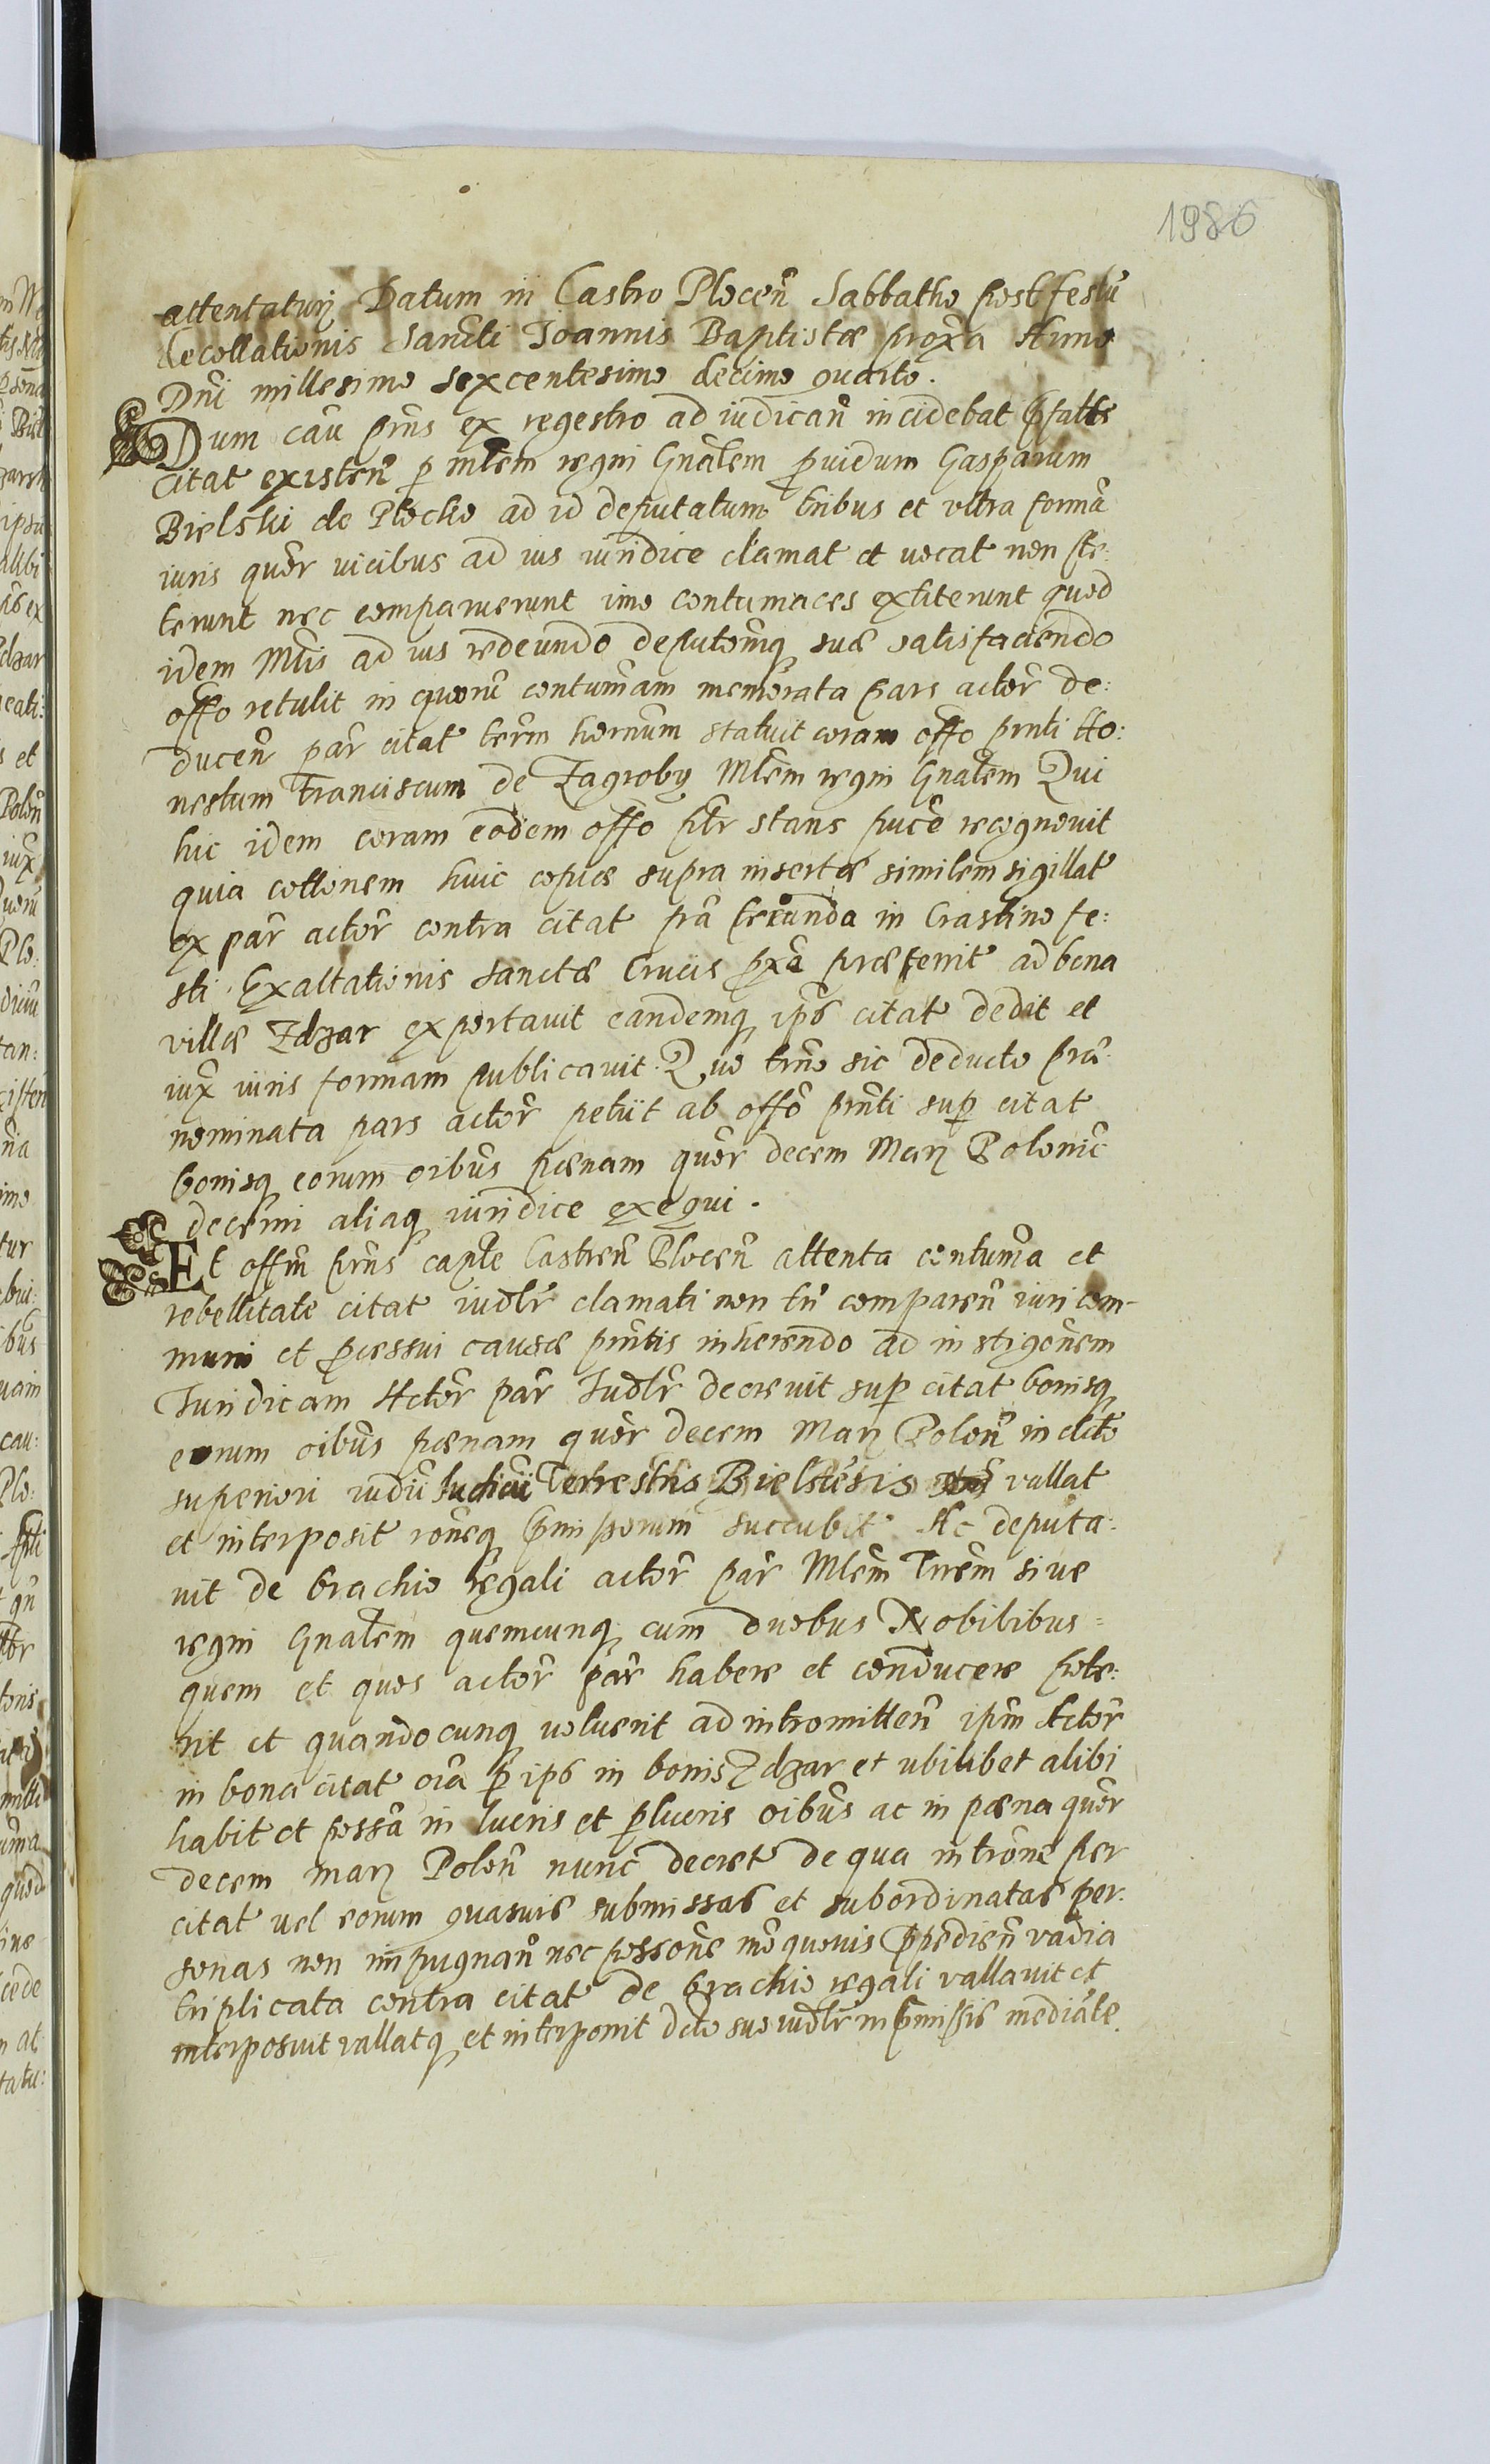 1986
attentaturi Datum in Castro Plocen̄ Sabbatho post festū
decollationis Sancti Joannis Baptistæ proxa Anno
Dni millesimo sexcentesimo decimo quarto.
Dum cau prns ex regestro ad iudican̄ incidebat
citat existen̄ p mlem regni Gnalem prouidum Gasparum
Bielski de Plocko ad id deputatum tribus et ultra formā
iuris quor uicibus ad ius iuridice clamat et uocat non ste:
terunt nec comparuerunt imo contumaces extiterunt quod
idem Mlis ad ius redeundo deputoniq suæ satisfaciendo
offo retulit in quorū contumam memorata pars actor̄ de:
ducen̄ par̄ citat term̄ hornum statuit coram offo prnti Ho:
nestum Franciscum de Zagroby Mlem regni Gnalem Qui
hic idem coram eodem offo pltr stans puce recognouit
quia cottonem huic copiæ supra insertæ similem sigillat
ex par̄ actor̄ contra citat prā in Crastino fe:
sti Exaltationis Sanctæ Crucis pxa præterit ad bona
villæ Zdzar exportauit eandemq ips citat dedit et
iux iuris formam publicauit. Quo trno sic deducto præ:
nominata pars actor̄ petiit ab offo prnti sup citat
bonisq eorum oibus pænam quor decem Marz Polonic
decerni aliaq iuridice exequi.
Et offm prns captle Castren̄ Plocen̄ attenta contuma et
rebellitate citat iudlr clamati non tn̄ comparen̄ iuri com-
muni et pcessui causæ prntis inherendo ad instigonem
Juridicam Actor̄ par̄ Judlr decreuit sup citat bonisq
eorum oibus pænam quor decem Marz Polon̄ in dcto
superiori iudii Judicii Terrestris Bielscēsis vallat
et interposit roneq pmissorum succubit. Ac deputa:
uit de brachio regali actor̄ par̄ Mlem Trrem siue
regni Gnalem quemcunq cum duobus Nobilibus
quem et quos actor̄ par̄ habere et conducere pote:
rit et quandocunq uoluerit ad intromitten̄ ipm Actor̄
in bona citat oia p ips in bonis Zdzar et ubilibet alibi
habit et possa in lucris et plucris oibus ac in pæna quor
decem marz Polon̄ nunc decret de qua introne per
citat uel eorum quasuis submissas et subordinatas per:
sonas non impugnan̄ nec possone mo quouis ppedien̄ vadia
triplicata contra citat de brachio regali vallauit et
interposuit vallatq et interponit dcto suo iudlr in pmissis mediāte